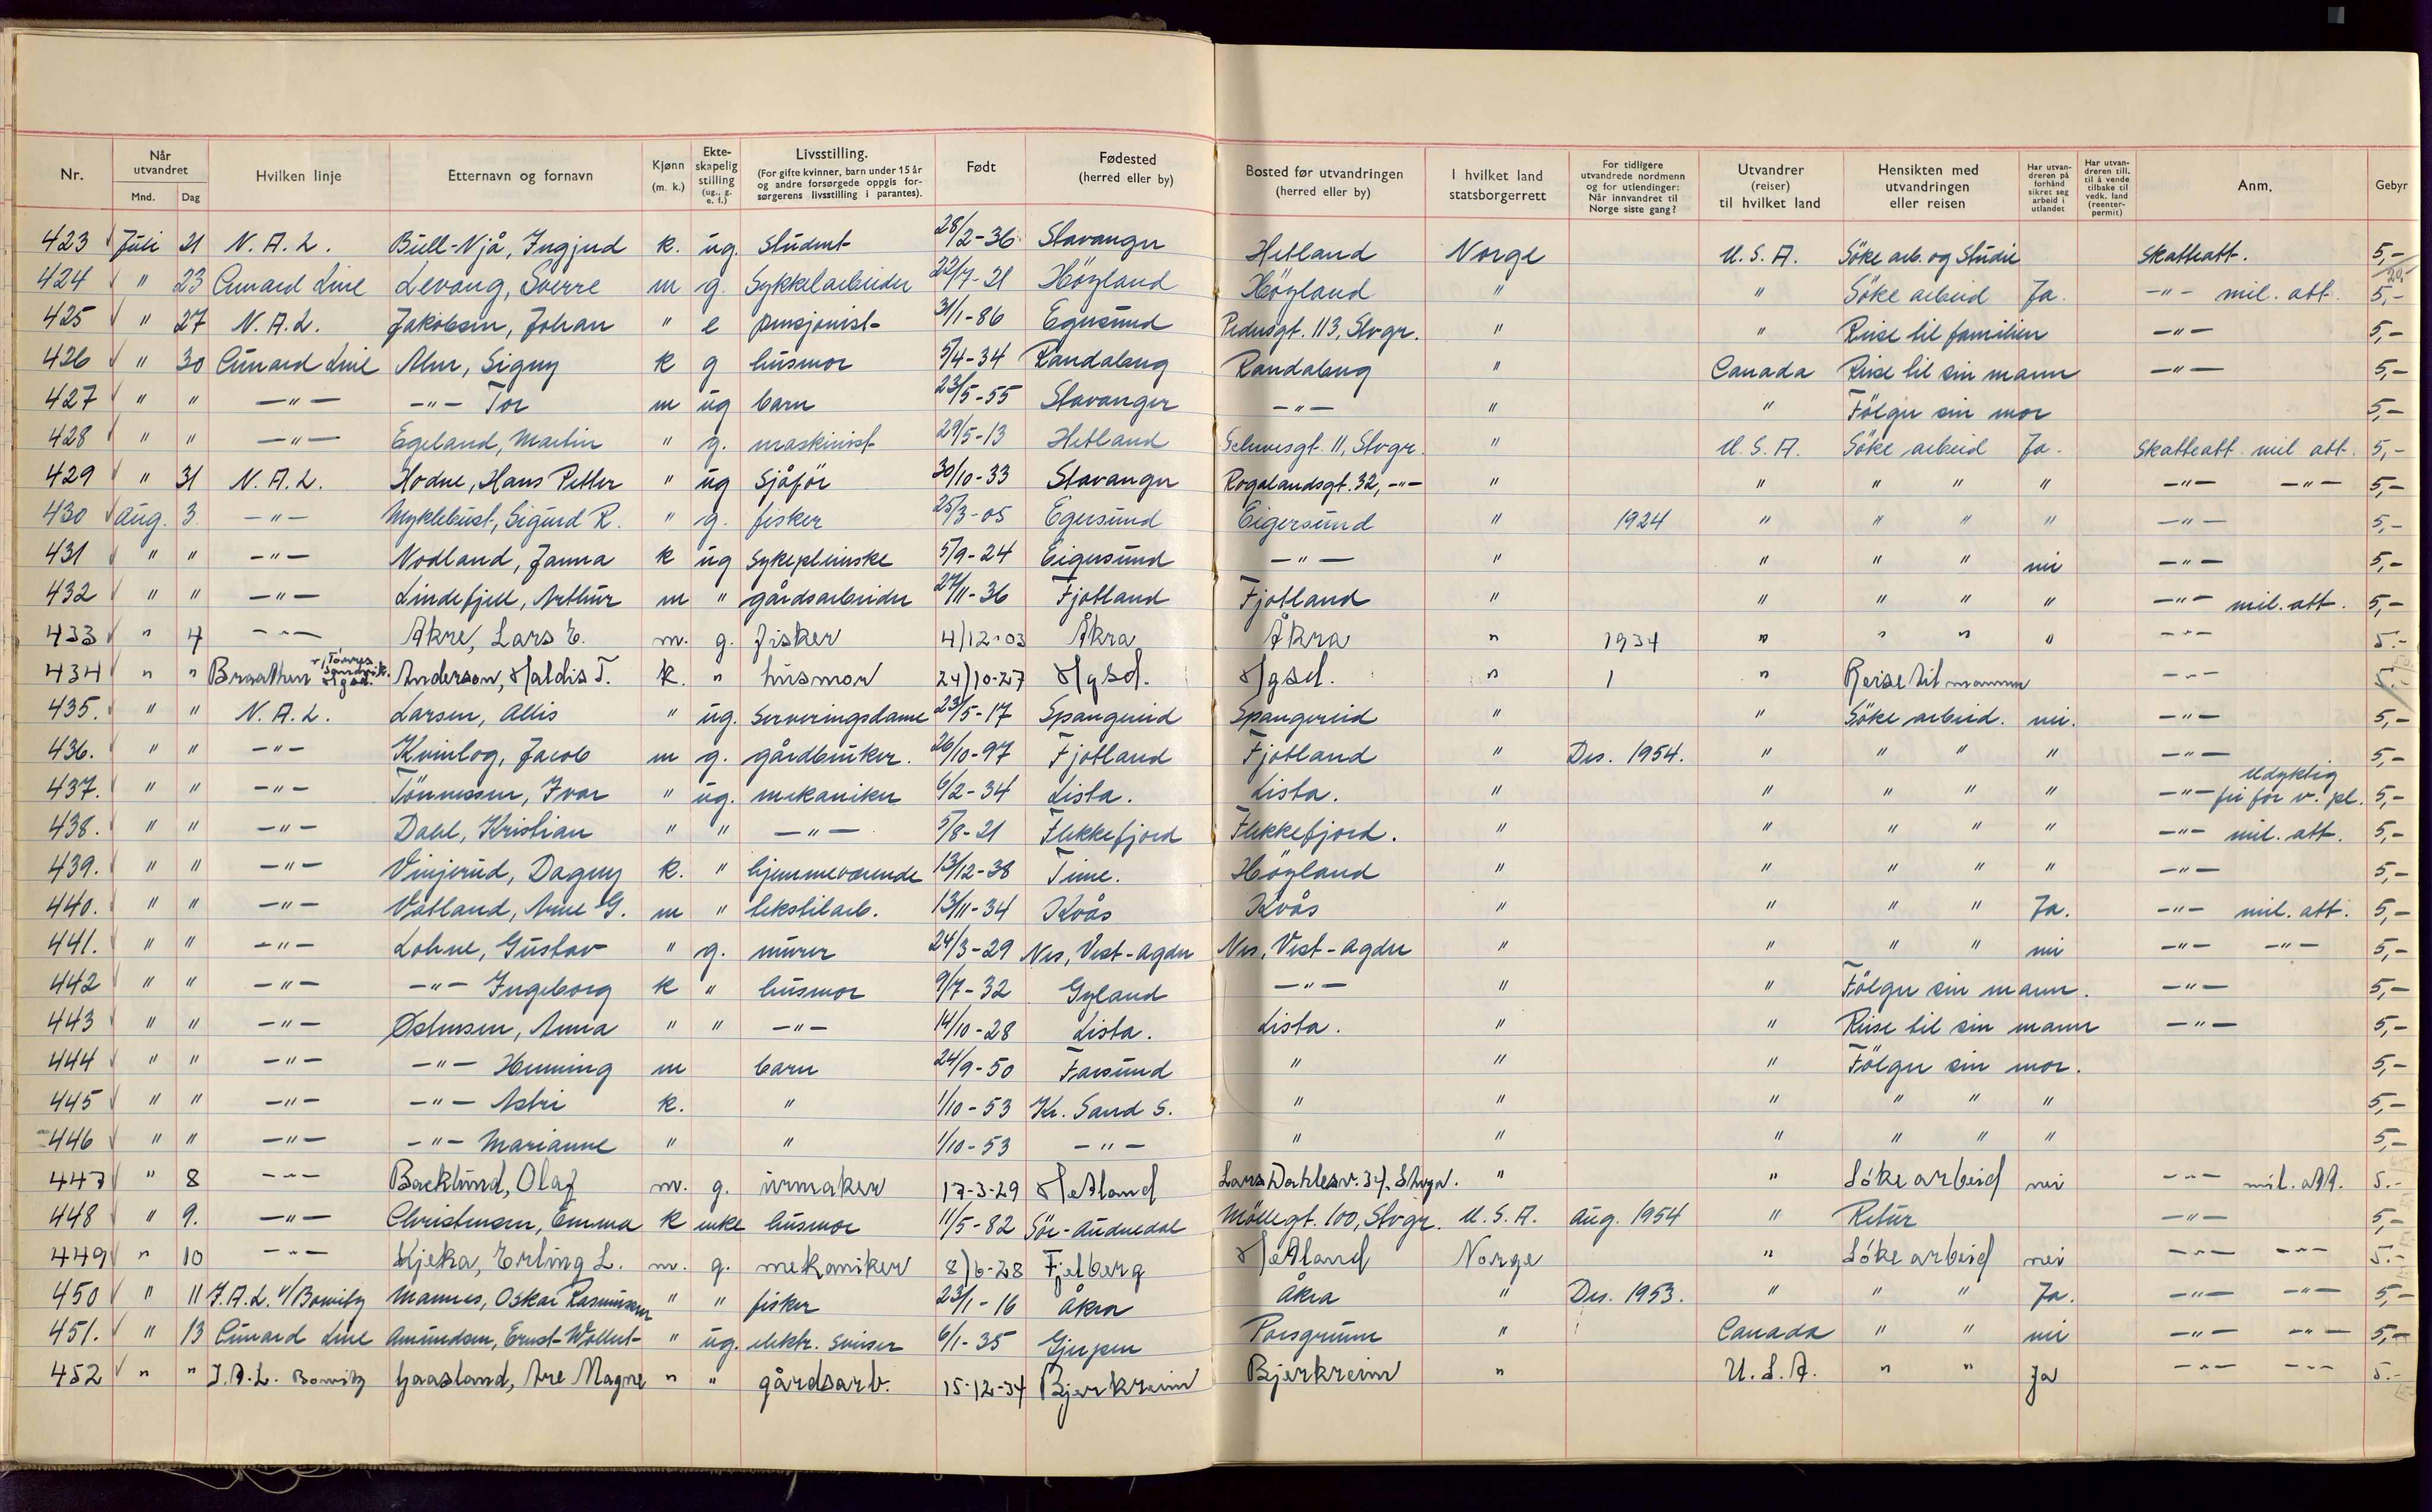 Nr. Når utvandret Mnd. Dag Hvilken linje Etternavn og fornavn Kjønn (m. k.) Ekteskapelig stilling (ug., g. e. f.) Livsstilling. (For gifte kvinner, barn under 15 år og andre forsørgede oppgis forsørgerens livsstilling i parantes). Født Fødested (herred eller by) Bosted før utvandringen (herred eller by) I hvilket land statsborgerrett For tidligere utvandrede nordmenn og for utlendinger: Når innvandret til Norge siste gang? Utvandrer (reiser) til hvilket land Hensikten med utvandringen eller reisen Har utvandreren på forhånd sikret seg arbeid i utlandet Har utvandreren till. til å vende tilbake til vedk. land (reenterpermit) Anm. Gebyr
423 Juli 21 N. A. L. Buell-Njå, Ingjerd k. ug. student 28/2-36 Stavanger Hetland Norge U. S. A. Söke arb. og Studie Skatteatt. 5,-
424 " 23 Cunard Line Levang, Sverre m g. Sykkelarbeider 22/7-21 Höyland Höyland " " Söke arbeid Ja. -"- mil. att. 5,-
425 " 27 N. A. L. Jakobsen, Johan " e pensjonist 31/1-86 Egersund Pedersgt. 113, Stvgr. " " Reise til familien -"- 5,-
426 " 30 Cunard Line Signy k g husmor 5/4-34 Randaberg Randaberg " Canada Reise til sin mann -"- 5,-
427 " " -"- -"- Tor m ug barn 23/5-55 Stavanger -"- " " Fölger sin mor 5,-
428 " " -"- Egeland, Martin " g. maskinist 29/5-13 Hetland 11, Stvgr. " U. S. A. Söke arbeid Ja. Skatteatt. mil. att. 5,-
429 " 31 N. A. L. Hodne, Hans Petter " ug Sjåför 30/10-33 Stavanger Rogalandsgt. 32, -"- " " " " " -"- -"- 5,-
430 Aug. 3. -"- Myklebust, Sigurd R. " g. fisker 25/3-05 Egersund Eigersund " 1924 " " " " -"- 5,-
431 " " -"- Nodland, Janna k ug sykepleierske 5/9-24 Eigersund -"- " " " " nei -"- 5,-
432 " " -"- Lindefjell, Arthur m " gårdsarbeider 27/11-36 Fjotland Fjotland " " " " " -"- mil. att. 5,-
433 " 4 -"- Åkre, Lars E. m. g. fisker 4/12-03 Åkra Åkra " 1934 " " " " -"- 5.-
434 " " Braathen v/Torres Sandvik. Hgsd. Anderson, Haldis T. k. " husmor 24/10-27 Hgsd. Hgsd. " 1 " Reise til mannen -"- 5.-
435. " " N. A. L. Larsen, Allis " ug. Serveringsdame 23/5-17 Spangereid Spangereid " " Söke arbeid. nei. -"- 5,-
436. " " -"- Kvinlog, Jacob m g. gårdbruker. 26/10-97 Fjotland Fjotland " Des. 1954. " " " " -"- 5,-
437. " " -"- Tönnessen, Ivar " ug. mekaniker 6/2-34 Lista. Lista. " " " " " -"- udyktig fri for v. pl. 5,-
438. " " -"- Dahl, Kristian " " -"- 5/8-21 Flekkefjord Flekkefjord. " " " " " -"- mil. att. 5,-
439. " " -"- Vinjerud, Dagny k. " hjemmeværende 13/12-38 Time. Höyland " " " " " -"- 5,-
440. " " -"- Vatland, Arne G. m " tekstilarb. 13/11-34 Kvås Kvås " " " " Ja. -"- mil. att. 5,-
441. " " -"- Lohne, Gustav " g. murer 24/3-29 Nes, Vest-Agder Nes, Vest-Agder " " " " nei -"- -"- 5,-
442 " " -"- -"- Ingeborg k " husmor 9/7-32 Gyland -"- " " Fölger sin mann. -"- 5,-
443 " " -"- Østensen, Anna " " -"- 14/10-28 Lista. Lista. " " Reise til sin mann -"- 5,-
444 " " -"- -"- Henning m barn 24/9-50 Farsund " " " Fölger sin mor. 5,-
445 " " -"- -"- Astri k. " 1/10-53 Kr. Sand S. " " " " " " 5,-
446 " " -"- -"- Marianne " " 1/10-53 -"- " " " " " " 5,-
447 " 8 -"- Backlund, Olaf m. g. urmaker 17-3-29 Hetland Lars Dahlesv. 34. Stvgr. " " Söke arbeid nei -"- mil. att. 5.-
448 " 9. -"- Christensen, Emma k enke husmor 11/5-82 Sör-Audnedal Möllegt. 100, Stvgr. U. S. A. Aug. 1954 " Retur -"- 5,-
449 " 10 -"- Kjeka, Erling L. m. g. mekaniker 8/6-28 Fjelberg Hetland Norge " Söke arbeid nei -"- -"- 5.-
450 " 11 J. A. L. v/Bowitz Mannes, Oskar Rasmussen " " fisker 23/1-16 Åkra Åkra " Des. 1953. " " " Ja. -"- -"- 5,-
451. " 13 Cunard Line Amundsen, Ernst " ug. elektr. sveiser 6/1-35 Gjerpen Porsgrunn " Canada " " nei -"- -"- 5,-
452 " " J. A. L. Bowitz Gaasland, Are Magne " " gårdsarb. 15-12-34 Bjerkreim Bjerkreim " U. S. A. " " Ja -"- -"- 5.-